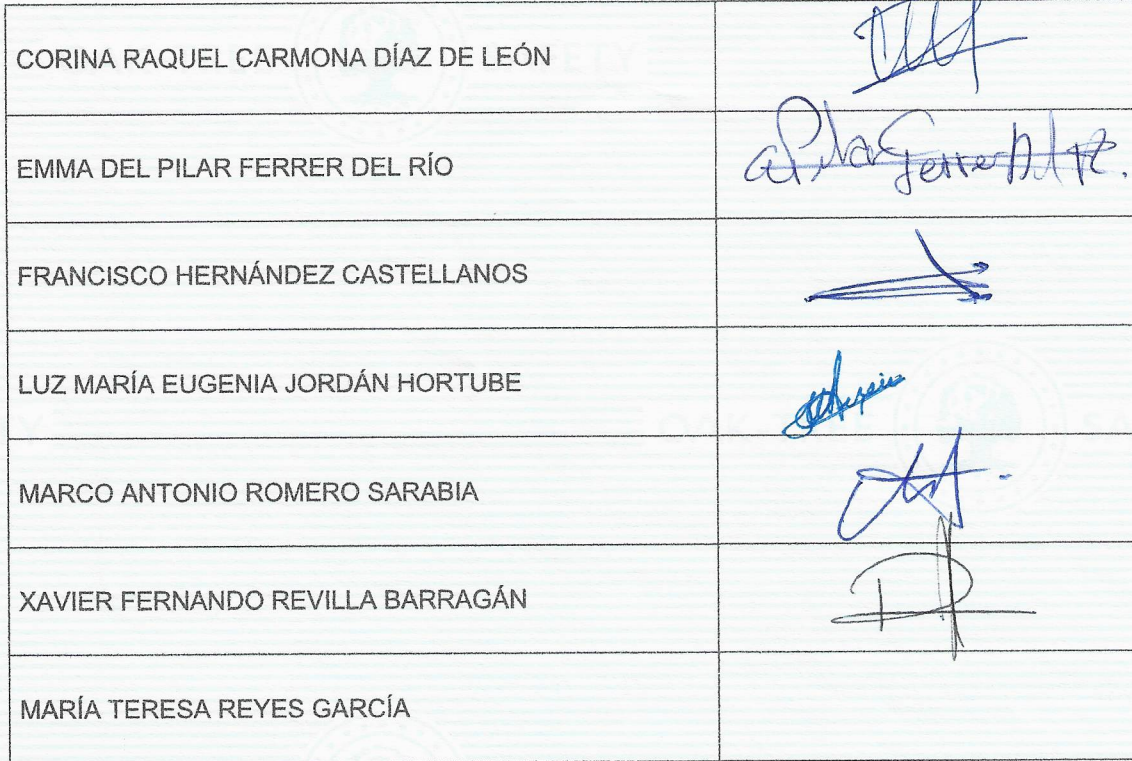 CORINA RAQUEL CARMONA DÍAZ DE LEÓN
EMMA DEL PILAR FERRER DEL RÍO
Pilar Ferrer
FRANCISCO HERNÁNDEZ CASTELLANOS
LUZ MARÍA EUGENIA JORDÁN HORTUBE
MARCO ANTONIO ROMERO SARABIA
XAVIER FERNANDO REVILLA BARRAGÁN
MARÍA TERESA REYES GARCÍA